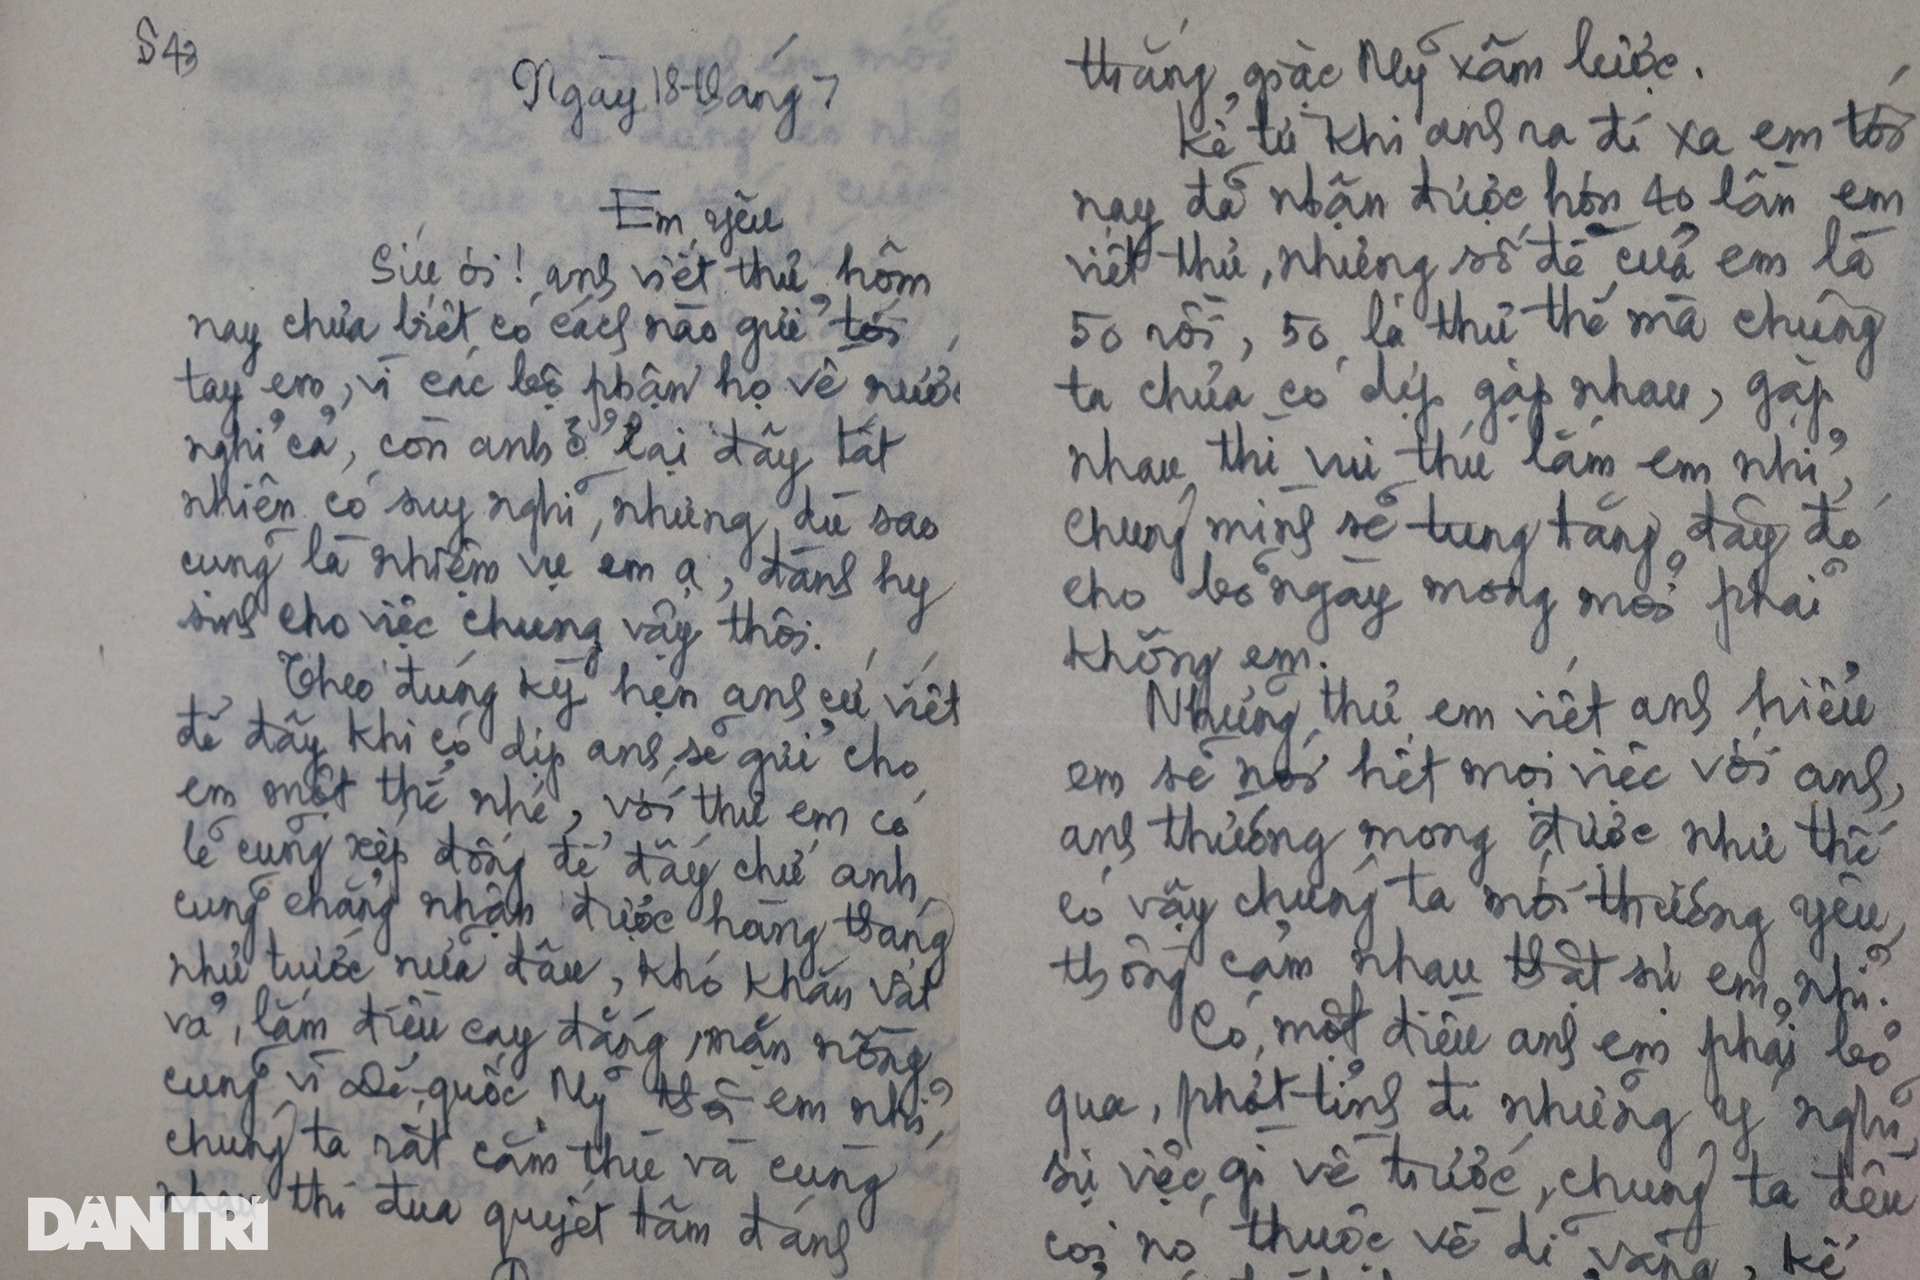 S43
Ngày 18 tháng 7
Em yêu
Sửu ơi! anh viết thư hôm
nay chưa biết có cách nào gửi tới
tay em, vì các bộ phận họ về nước
nghỉ cả, còn anh ở lại đây tất
nhiên có suy nghĩ, nhưng dù sao
cũng là nhiệm vụ em ạ, đành hy
sinh cho việc chung vậy thôi.
Theo đúng kỳ hẹn anh cứ viết
để đấy khi có dịp anh sẽ gửi cho
em một thể nhé, với thư em có
lẽ cũng xếp đống để đấy chứ anh
cũng chẳng nhận được hàng tháng
như trước nữa đâu, khó khăn vất
vả, lắm điều cay đắng, mặn nồng
cũng vì Đế quốc Mỹ em nhỉ,
chúng ta rất căm thù và cùng
nhau thi đua quyết tâm đánh
thắng giặc Mỹ xâm lược.
Kể từ khi anh ra đi xa em tới
nay đã nhận được hơn 40 lần em
viết thư, nhưng số đề của em là
50 rồi, 50 lá thư thế mà chúng
ta chưa có dịp gặp nhau, gặp
nhau thì vui thú lắm em nhỉ,
chúng mình sẽ tung tăng đây đó
cho bõ ngày mong mỏi phải
không em.
Những thư em viết anh hiểu
em sẽ nói hết mọi việc với anh,
anh thường mong được như thế
có vậy chúng ta mới thương yêu,
thông cảm nhau thật sự em nhỉ.
Có một điều anh em phải bỏ
qua, phớt tỉnh đi những ý nghĩ,
sự việc gì về trước, chúng ta đều
coi nó thuộc về dĩ vãng, kể
DÂN TRÍ